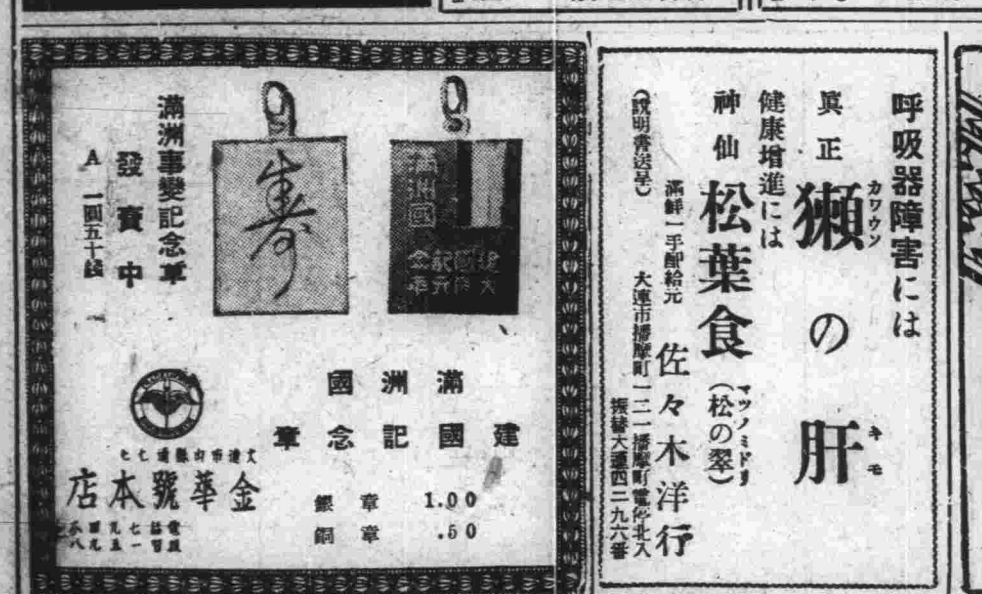 呼吸器障害には
眞正 獺の肝
カワウソ
キモ
健康增進には
神仙 松葉食(松の翠)
マツノミドリ
(說明書送呈)
滿鮮一手配給元 佐々木洋行
大連市播磨町一二一播磨町電停北入
振替大連四二九六番
滿洲事變記念章
發賣中
A 一圓五十錢
壽
滿洲國
建國記念
大同元年
滿洲國
建國記念章
銀章 1.00
銅章 .50
大連市山縣通七七
金華號本店
電話